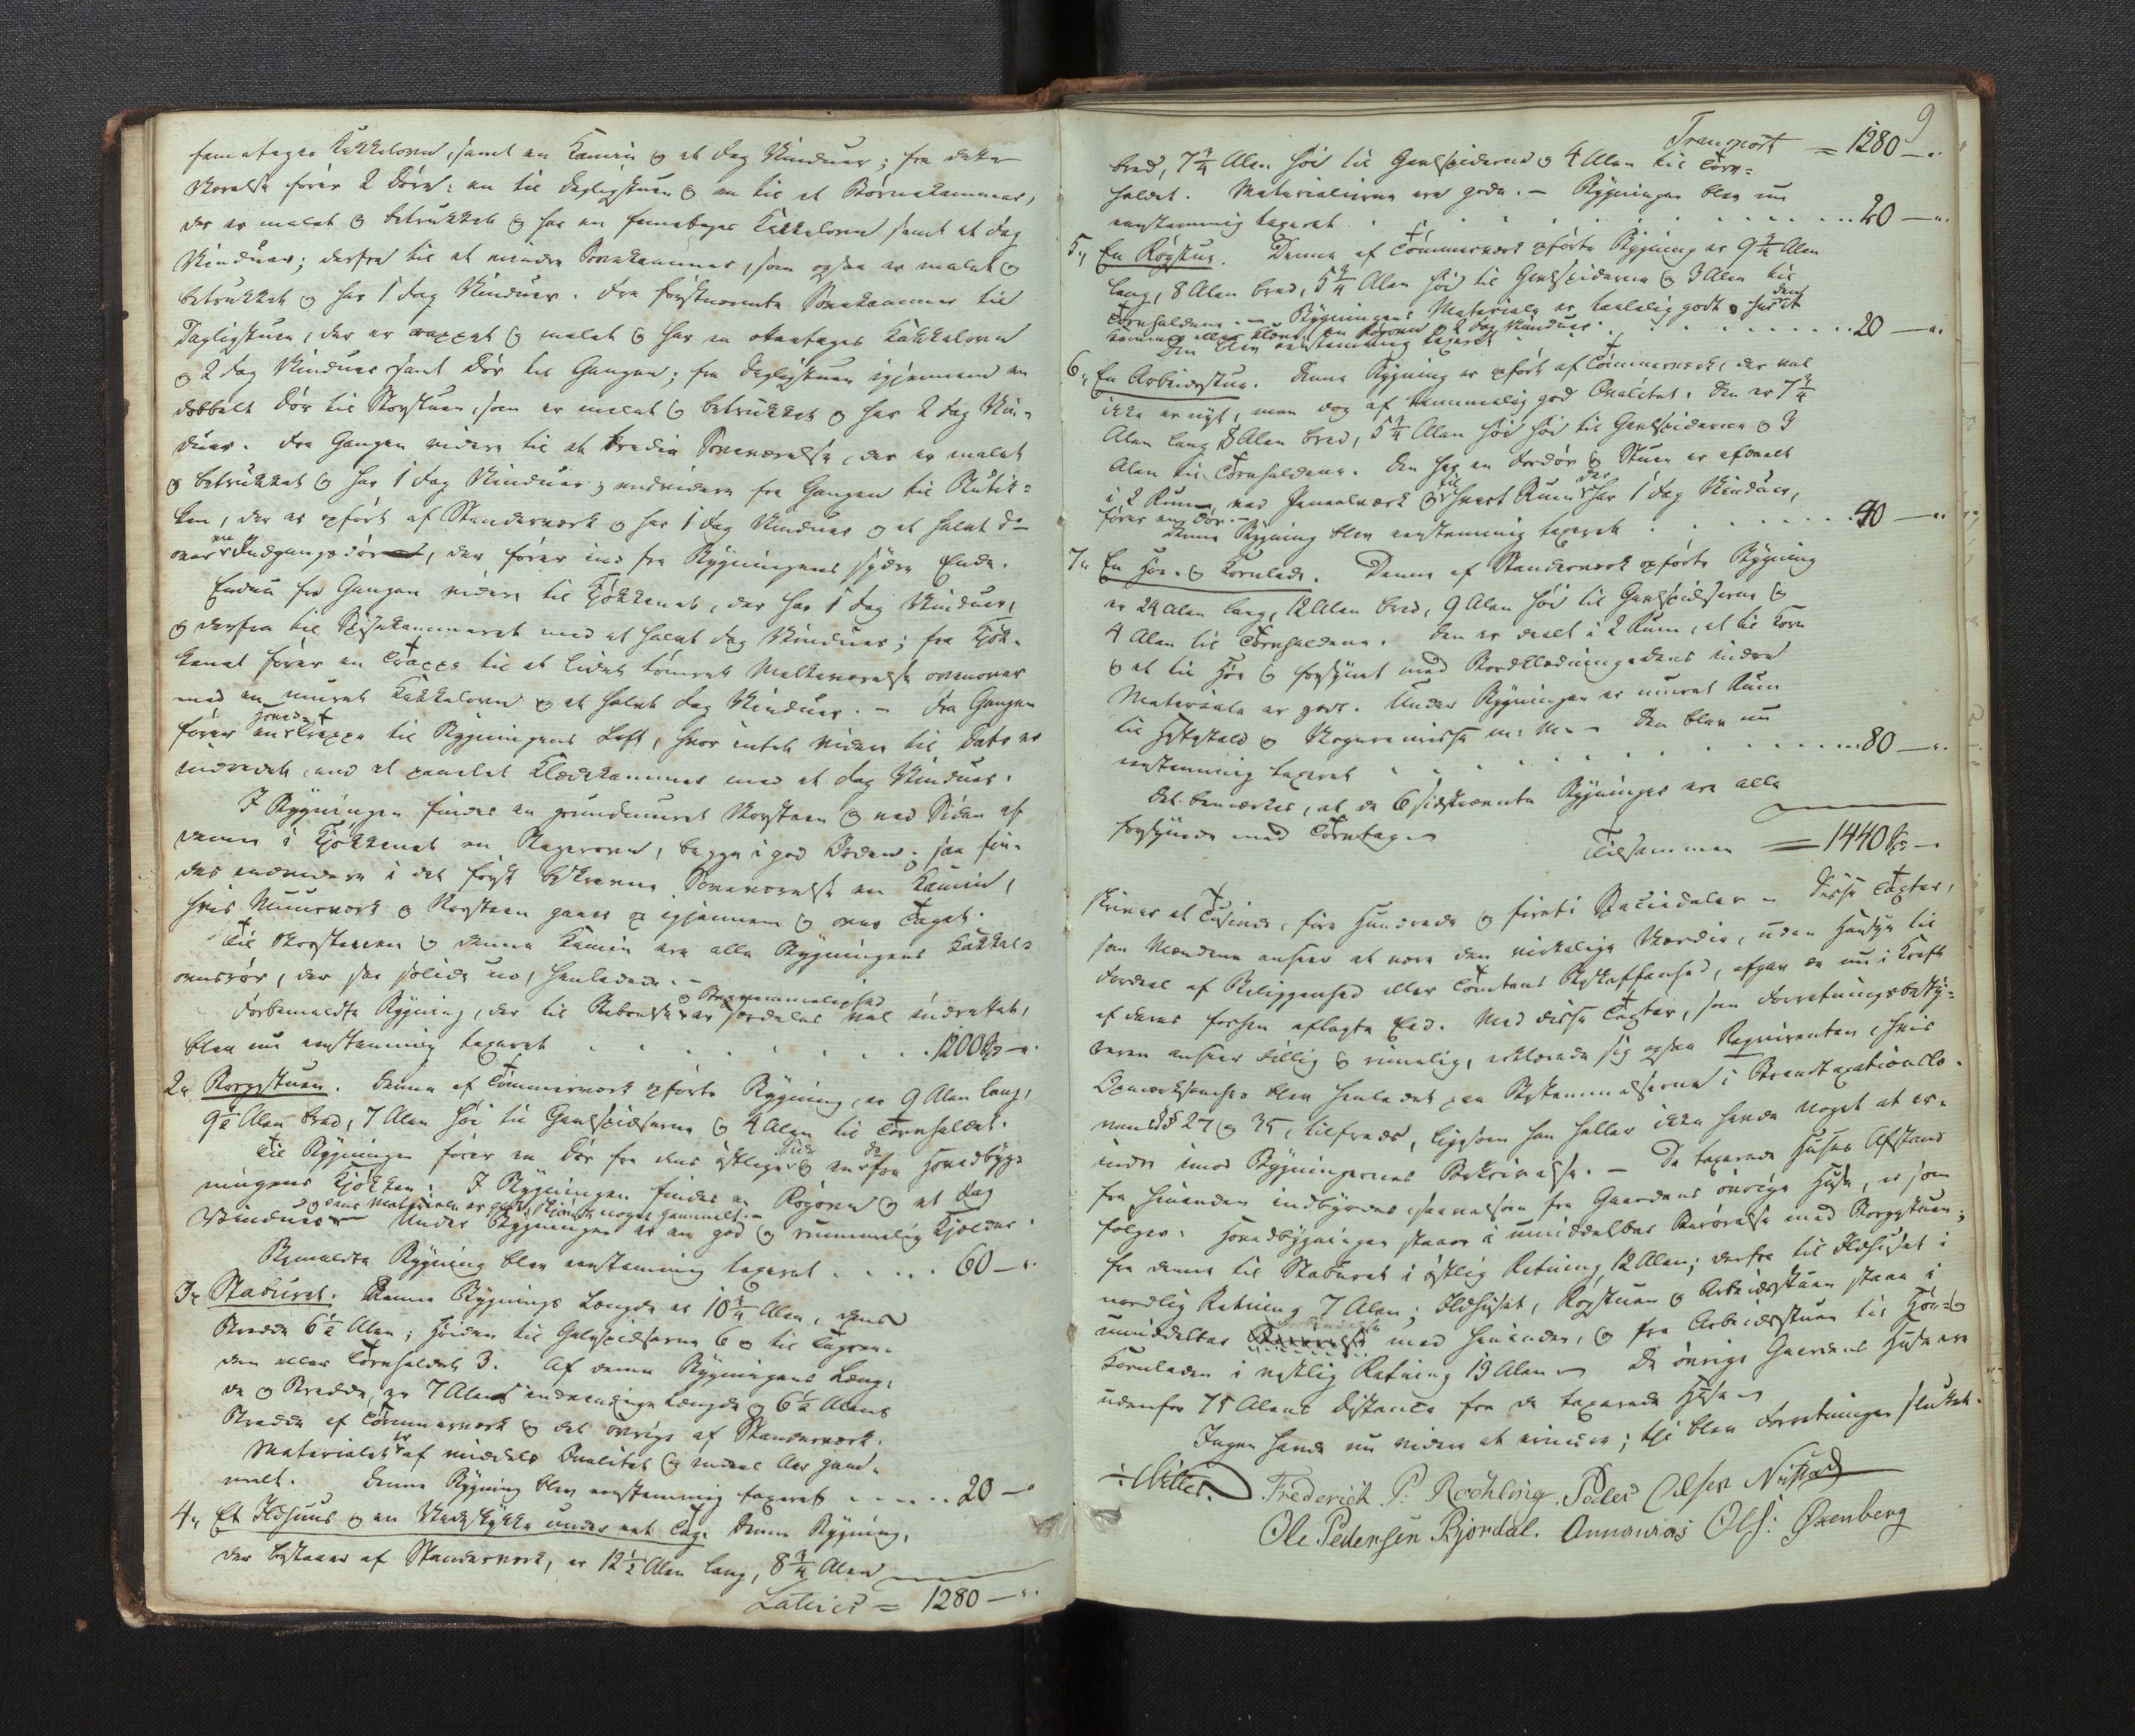 femetages Kakkelovn, samt en Kamin og et Fag Vinduer; fra dette
Værelse fører 2 Døre: en til Dagligstuen og en til et Børnekammer,
der er malet og betrukket og har en femetages Kakkelovn samt et Fag
Vinduer; derfra til et mindre Sovekammer, som ogsaa er malet og
betrukket og har 1 Fag Vinduer. Fra førstnævnte Sovekammer til
Dagligstuen, der er rappet og malet og har en Kakkelovn
og 2 Fag Vinduer samt Dør til Gangen; fra Dagligstuen igjennem en
dobbelt Dør til Storstuen, som er malet og betrukket og har 2 Fag Vin-
duer. Fra Gangen videre til et tredie Soveværelse, der er malet
og betrukket og har 1 Fag Vinduer; endvidere fra Gangen til
der er opført af Standerværk og har 1 Fag Vinduer og et halvt do
over en Indgangsdør, der fører ind fra Bygningens søndre Ende.
Endnu fra Gangen videre til Kjøkkenet, der har 1 Fag Vinduer,
og derfra til Spisekammeret med et halvt Fag Vinduer; fra Kjøk-
kenet fører en Trappe til et lidet tømret Melkeværelse ovenover
med en muret Kakkelovn og et halvt Fag Vinduer. – Fra Gangen
fører en Hoved-Trappe til Bygningens Loft, hvor intet videre til Dato er
indredet, end et panelet Klædekammer med et Fag Vinduer.
I Bygningen findes en grundmuret Skorsteen og ved Siden af
denne i Kjøkkenet en Bagerovn, begge i god Orden; saa fin-
des endvidere i det først beskrevne Soveværelse en Kamin,
hvis Muurværk og Skorsteen gaaer op igjennem og over Taget.
Til Skorstenen og denne Kamin ere alle Bygningens Kakkel-
ovnsrør, der see solide ud, henledede. –
Forbemeldte Bygning, der til Beboelse og Bequemmelighed er særdeles vel indrettet,
blev nu eenstemmig taxeret . . . . . . . . . 1200 Spd – "
2, Borgstuen. Denne af Tømmerværk opførte Bygning, er 9 Alen lang,
9½ Alen bred, 7 Alen høi til Gavlspidserne og 4 Alen til Tørnholdet.
Til Bygningen fører en Dør fra dens østlige Side og en do fra Hovedbyg-
ningens Kjøkken. I Bygningen findes en Røgovn og et Fag
Vinduer og dens Materiale er godt skjønt noget gammelt. – Under Bygningen er en god og rummelig Kjelder.
Bemeldte Bygning blev eenstemmig taxeret . . . . . 60 – "
3, Staburet. Denne Bygnings Længde er 10¾ Alen, dens
Bredde 6½ Alen; Høiden til Gavlspidserne 6 og til
eller Tørnholdet 3. Af denne Bygningens Læng-
de og Bredde, er 7 Alens indvendige Længde og 6½ Alens
Bredde af Tømmerværk og det øvrige af Standerværk.
Materialet er af middels Qvalitet og endeel Aar gam-
melt. Denne Bygning blev eenstemmig taxeret . . . . . . 20 –
4, Et Ildhuus og en under eet Tag. Denne Bygning,
der bestaaer af Standerværk, er 12½ Alen lang, 8¾ Alen
Lateris = 1280 – "
9
Transport = 1280 – "
bred, 7¾ Alen høi til Gavlspidserne og 4 Alen til Tørn-
holdet. Materialierne ere gode. – Bygningen blev nu
eenstemmig taxeret . . . . . . . . . . . . 20 – "
5, En Røgstue. Denne af Tømmerværk opførte Bygning er 9¾ Alen
lang, 8 Alen bred, 5¾ Alen høi til Gavlspidserne og 3 Alen til
Tørnholdene. – Bygningens Materiale er taalelig godt og har et
Kammer eller Kleve, en Røgovn og 2 Fag Vinduer.
Den blev eenstemmig taxeret . . . . . . . . . 20 – "
6, En Arbeidsstue. Denne Bygning er opført af Tømmerværk, der vel
ikke er nyt, men dog af temmelig god Qvalitet. Den er 7¾
Alen lang, 8 Alen bred, 5¾ Alen høi til Gavlspidserne og 3
Alen til Tørnholdene. Den har en Fordør og Stuen er afdeelt
i 2 Rum, ved Panelværk og til hvert Rum der har 1 Fag Vinduer,
fører en Dør. –
Denne Bygning blev eenstemmig taxeret . . . . . . . . 40 – "
7, En Høe- og Kornlade. Denne af Standerværk opførte Bygning
er 24 Alen lang, 12 Alen bred, 9 Alen høi til Gavlspidserne og
4 Alen til Tørnholdene. Den er deelt i 2 Rum, et til Korn
og et til Høe og forsynet med Bordklædning. Dens indre
Materiale er godt. Under Bygningen er muret Rum
til Hestestald og Vognremisse m: m: – Den blev nu
eenstemmig taxeret . . . . . . . . . . . 80 – "
Det bemærkes, at de 6 sidstnævnte Bygninger ere alle
forsynede med Tørvtag. –
Tilsammen = 1440 Spd –
skriver et Tusinde, fire Hundrede og firti Speciedaler. – Disse Taxter,
som Mændene ansaae at være den virkelige Værdie, uden Hensyn til
Fordeel af Beliggenhed eller Tomtens Beskaffenhed, afgav de nu i Kraft
af deres forhen aflagte Eed. Med disse Taxter, som Forretningsbesty-
reren ansaae billig og rimelig, erklærede sig ogsaa Reqvirenten, hvis
Opmærksomhed blev henledet paa Bestemmelserne i Brandtaxationslo-
vens §§ 27 og 35, tilfreds, ligesom han heller ikke havde noget at er-
indre imod Bygningernes Beskrivelse. – De taxerede Huses Afstand
fra hinanden indbyrdes saavelsom fra Gaardens øvrige Huse, er som
følger: Hovedbygningen staaer i umiddelbar Berørelse med Borgstuen;
fra denne til Staburet i østlig Retning 12 Alen; derfra til Ildhuset i
nordlig Retning 7 Alen; Ildhuset, Røgstuen og Arbeidsstuen staae i
umiddelbar Forbindelse med hinanden, og fra Arbeidsstuen til Høe- og
Kornladen i vestlig Retning 19 Alen. – De øvrige Gaardens Huse ere
udenfor 75 Alens Distance fra de taxerede Huse. –
Ingen havde nu videre at erindre; thi blev Forretningen sluttet.
Frederich P. Rochling. Peder Olsen
Ole Pedersen Bjordal. Annanias Ols: Øxenberg